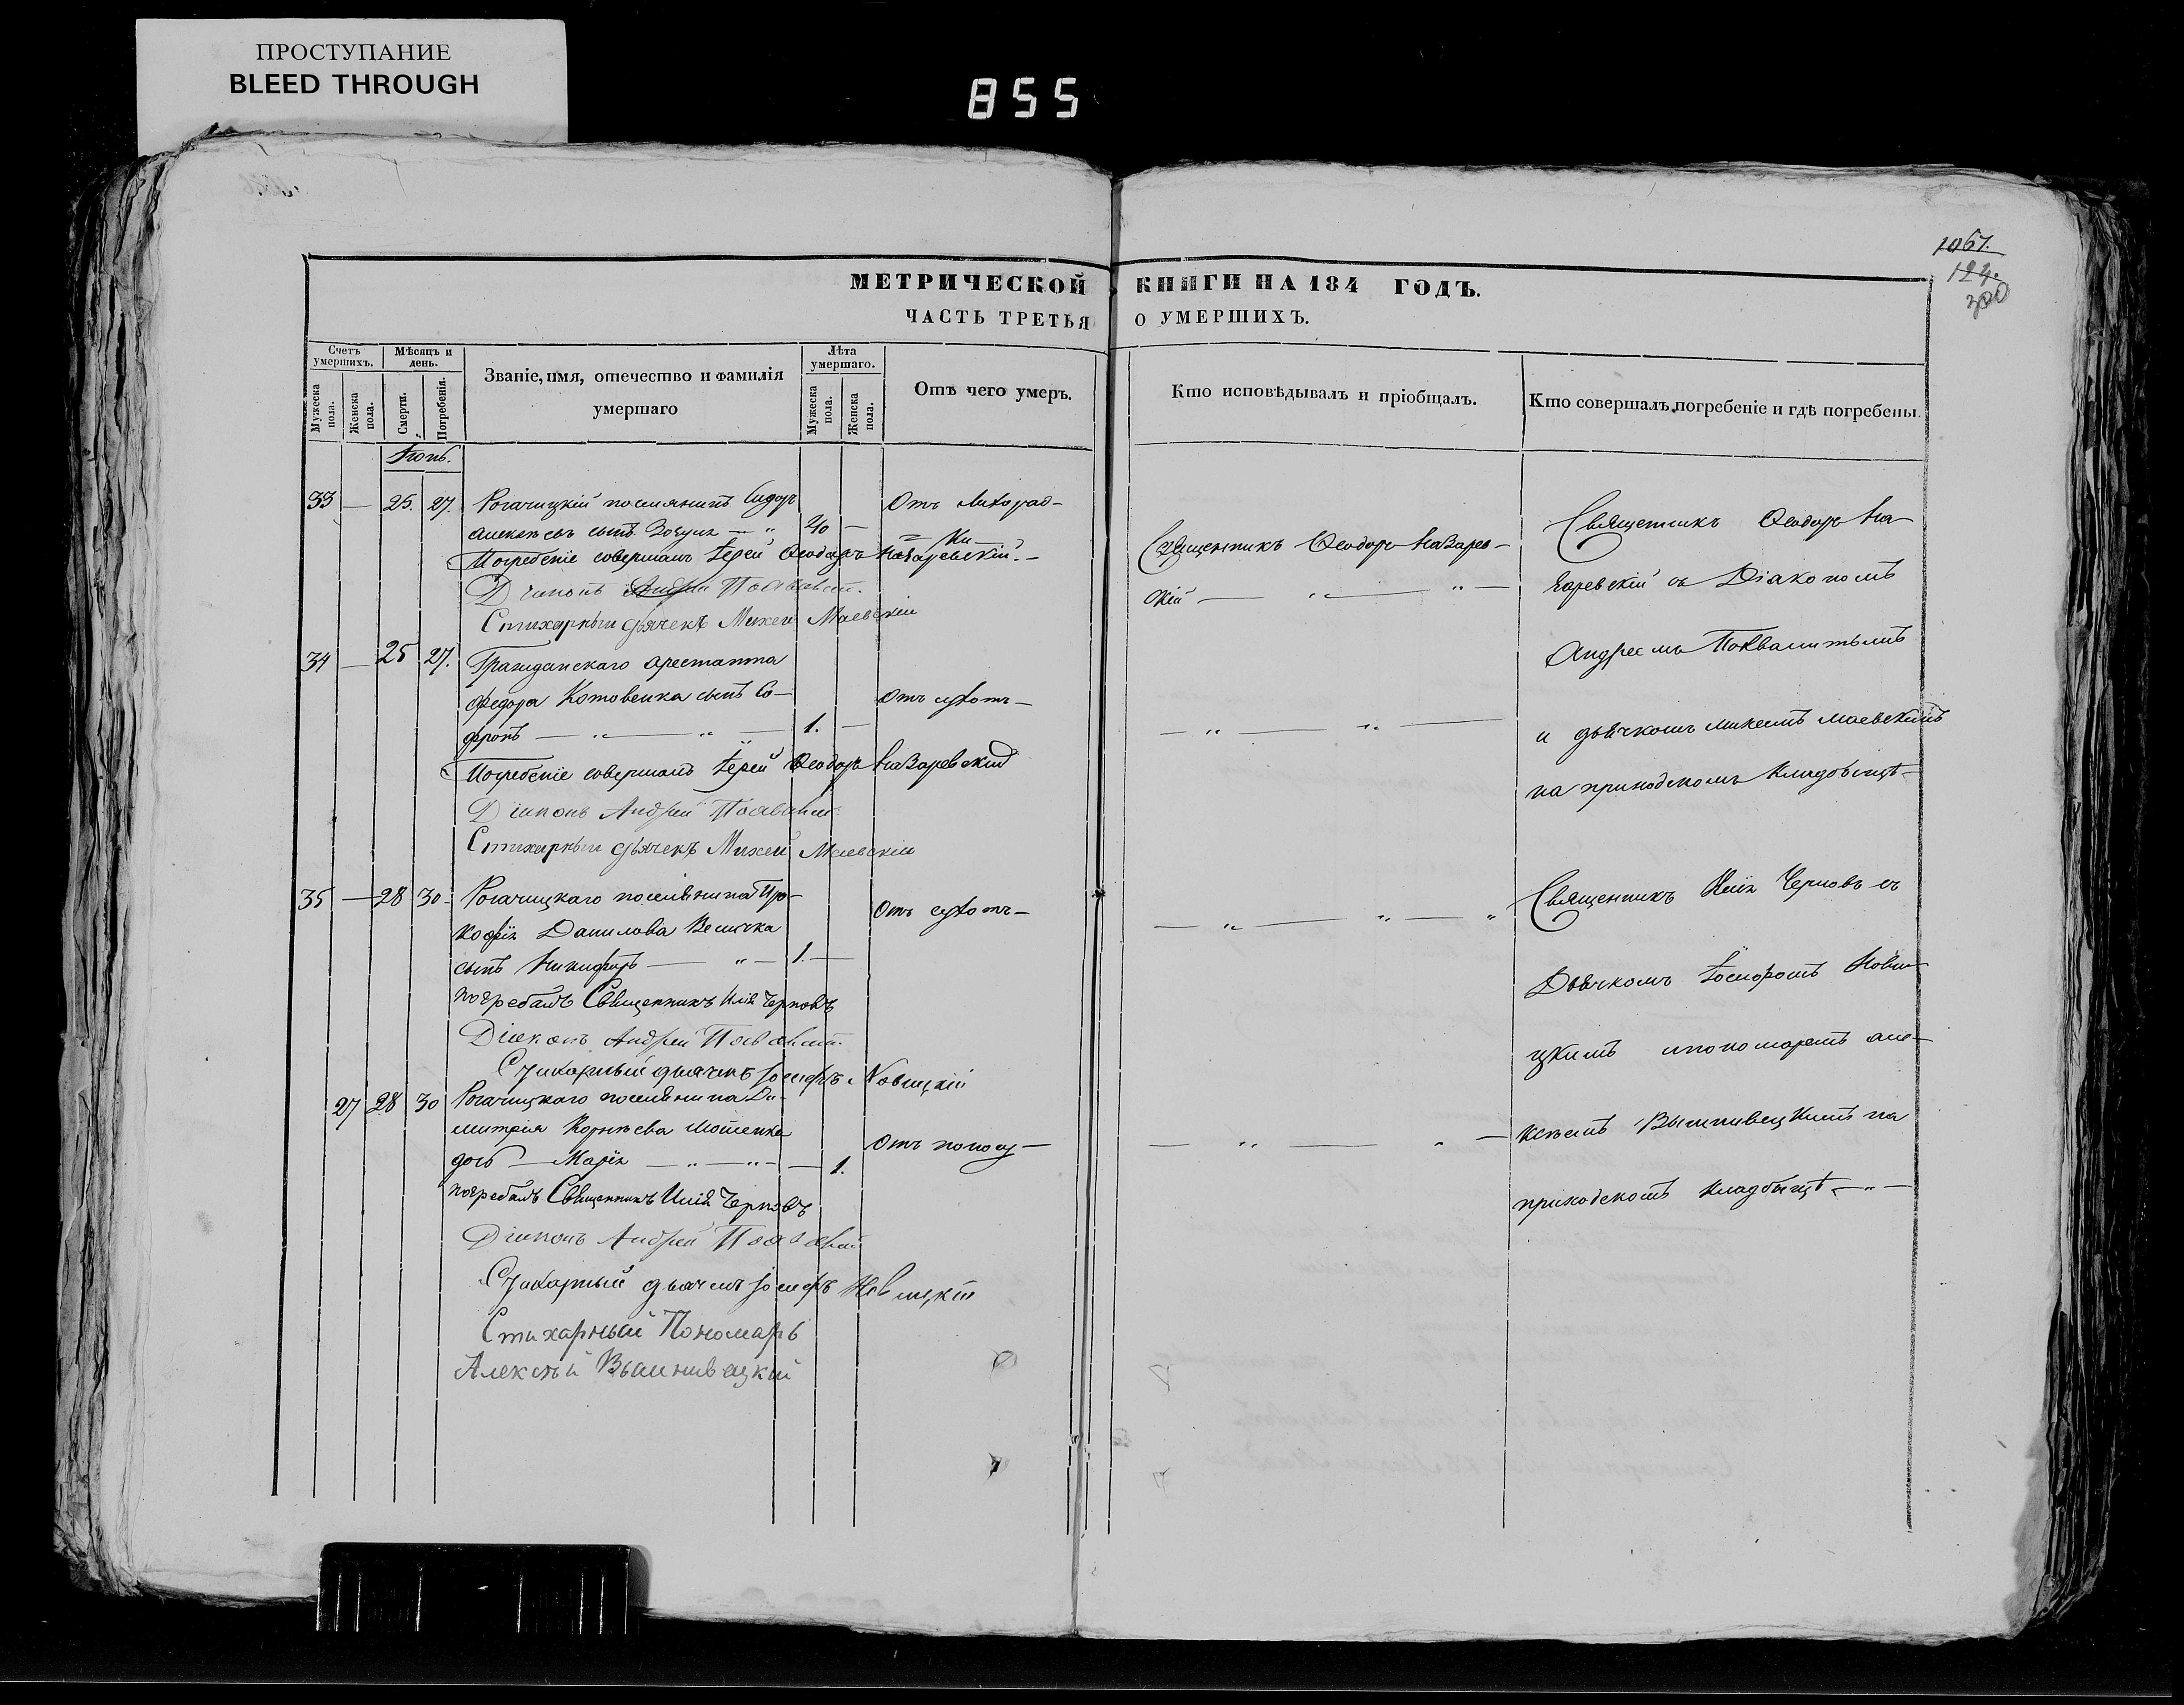 ПРОСТУПАНИЕ
BLEED THROUGH
855
1067.
124.
300
МЕТРИЧЕСКОЙ КНИГИ НА 184 ГОДЪ.
ЧАСТЬ ТРЕТЬЯ О УМЕРШИХЪ.
Счетъ умершихъ.
Мужеска пола.
Женска пола.
Мѣсяцъ и день.
Смерти.
Погребенія.
Званіе, имя, отечество и фамилія
умершаго
Лѣта умершаго.
Мужеска пола.
Женска пола.
Отъ чего умеръ.
Кто исповѣдывалъ и пріобщалъ.
Кто совершалъ погребеніе и гдѣ погребены.
33 — 25. 27. Рогачицкій поселянинъ Сидоръ
Алексѣевъ сынъ — " 40 — Отъ лихорад-
ки
Погребеніе совершалъ Іерей Ѳеодоръ Назаревскій. —
Діаконъ Андрей
Стихарный дьячекъ Михей Маевскій
34 — 25 27. Гражданскаго арестанта
Федора Котовенка сынъ Со-
фронъ — " — " — 1. — Отъ сухотъ —
Погребеніе совершалъ Іерей Ѳеодоръ Назаревскій
Діаконъ Андрей
Стихарный дьячекъ Михей Маевскій
35 — 28 30 — Рогачицкаго поселянина Про-
кофія Данилова Величка
сынъ Никифоръ — " — 1. — Отъ сухотъ —
погребалъ Священникъ Илія Черновъ
Діаконъ Андрей
Стихарный дьячекъ Іосифъ Новицкій
27 28 30 Рогачицкаго поселянина Ди-
митрія Корнѣева Мошенка
дочь — Марія — " — " — — 1. Отъ поносу —
погребалъ Священникъ Илія Черновъ
Діаконъ Андрей
Стихарный дьячекъ Іосифъ Новицкій
Стихарный Пономарь
Алексѣй Вышнивецкій
Священникъ Ѳеодоръ Назарев-
скій — " — " —
— " — " —
— " — " — "
— " — " —
Священникъ Ѳеодоръ На-
заревскій съ Діакономъ
Андреемъ Похвалитымъ
и дьячкомъ Михеемъ Маевскимъ
на приходскомъ кладбищѣ —
Священникъ Илія Черновъ съ
Дьячкомъ Іосифомъ Нови-
цкимъ и пономаремъ Але-
ксѣемъ Вышнивецкимъ на
приходскомъ кладбищѣ — " —